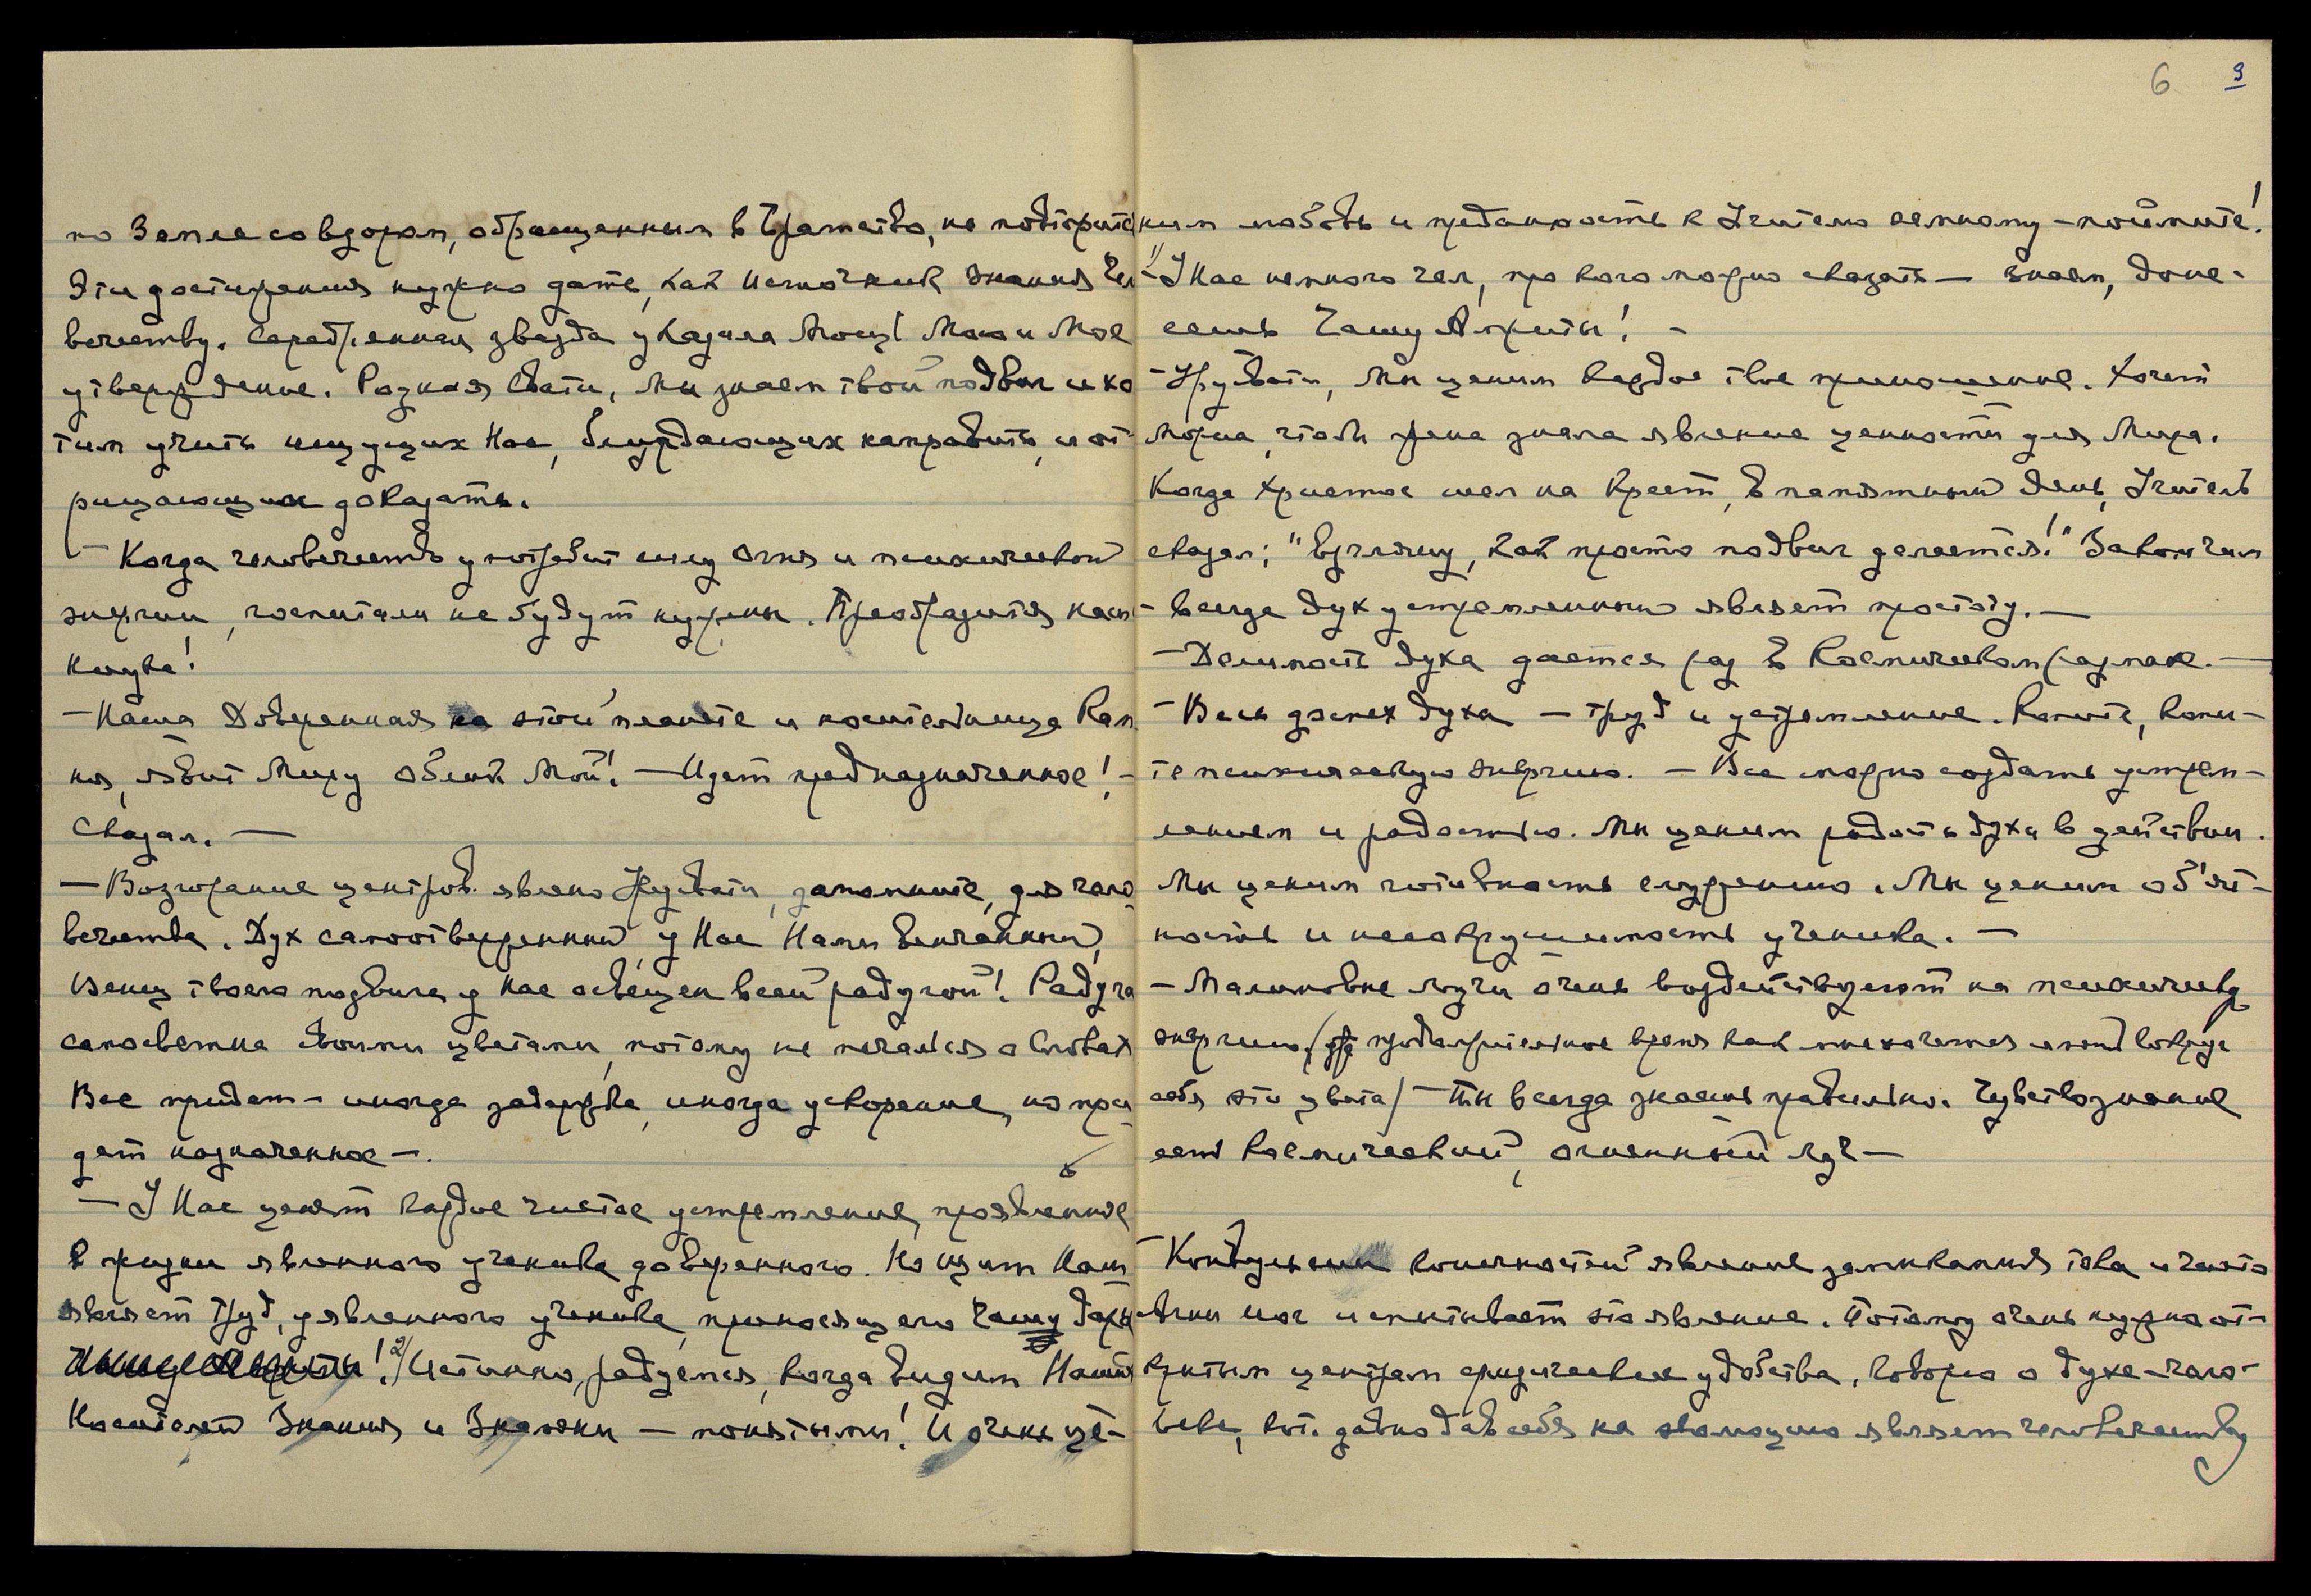 по Земле со взором, обращенным в Братство, не повторите
Эти достижения нужно дать, как источник знания Чел
вечеству. Серебренная звезда указала Мощь Мою и Мое
утверждение. Родная Свати, Мы знаем твой подвиг и хо
тим учить ищущих Нас, блуждающих направить, и от
рицающим доказать.
— Когда человечество употребит силу Огня и психической
энергии, госпитали не будут нужны. Преобразится нам
наука!
— Наша Доверенная на этой планете и носительница Кам
ня, явит Миру Облик Мой! — Идет предназначенное! —
Сказал. —
— Возгорание центров явлено Урусвати, запомните, для чело
вечества. Дух самоотверженный, у Нас Нами Венчанный,
Венец твоего подвига у Нас освещен всей радугой! Радуга
самосветна своими цветами, потому не печалься о Словах
Все придет — иногда задержка, иногда ускорение, но при
дет назначенное —.
— У Нас ценят каждое чистое устремление, проявленное
в жизни явленного ученика доверенного. На щит Наш
являет труд, у явленного ученика, приносящего Чашу дары
! 2/ Истинно, радуемся, когда видим Наших
Носителей Знания и — понятыми! И очень це-
6 9
ним любовь и преданность к Учителю земному — поймите!
1/ — У Нас немного чел, про кого можно сказать — знаем, доне-
сешь Чашу Амриты! —
— Урусвати, Мы ценим каждое твое приношение. Хочет
Мориа, чтобы жена знала явление ценности для Мира.
Когда Христос шел на Крест, в памятный день, Учитель
сказал: "Взгляну, как просто подвиг делается!" Закончим
— всегда дух устремленный являет простоту. —
— Делимость духа дается раз в Космическом размахе. —
— Весь доспех духа — труд и устремление. Копите, копи-
те психическую энергию. — Все можно создать устрем-
лением и радостью. Мы ценим радость духа в действии.
Мы ценим готовность служению. Мы ценим об'ят-
ность и несокрушимость ученика. —
— Малиновые лучи очень воздействуют на психическую
энергию, продолжительное время как мне хочется иметь вокруг
себя эти цвета/ — Ты всегда знаешь правильно. Чувствознание
есть космический, огненный луч —
— Конвульсии конечностей явление замыкания тока и часто
Агни Иог испытывает это явление. Потому очень нужно от-
крытым центрам физические удобства, говорю о духе-чело-
веке, кот. давно дав себя на эволюцию являет человечеству